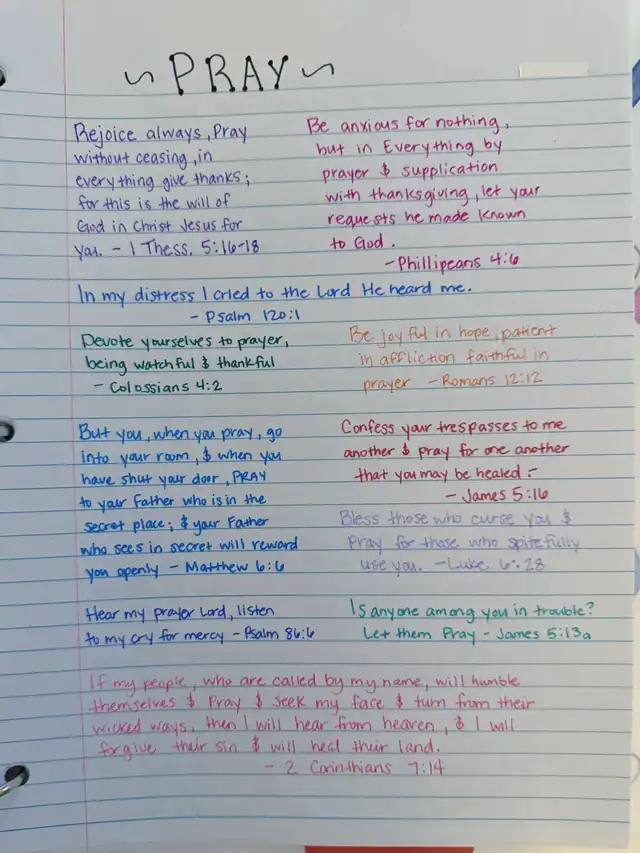 ~ PRAY ~
Rejoice always, Pray
without ceasing, in
everything give thanks;
for this is the will of
God in Christ Jesus for
you. - 1 Thess. 5:16-18
Be anxious for nothing,
but in Everything by
prayer & supplication
with thanksgiving, let your
requests be made known
to God.
- Phillipeans 4:6
In my distress I cried to the Lord He heard me.
- Psalm 120:1
Devote yourselves to prayer,
being watchful & thankful
- Colossians 4:2
Be joyful in hope, patient
in affliction faithful in
prayer - Romans 12:12
But you, when you pray, go
into your room, & when you
have shut your door, PRAY
to your Father who is in the
secret place; & your Father
who sees in secret will reward
you openly - Matthew 6:6
Confess your trespasses to me
another & pray for one another
that you may be healed -
- James 5:16
Bless those who curse you &
Pray for those who spitefully
use you. - Luke 6:28
Hear my prayer Lord, listen
to my cry for mercy - Psalm 86:6
Is anyone among you in trouble?
Let them Pray - James 5:13a
If my people, who are called by my name, will humble
themselves & Pray & seek my face & turn from their
wicked ways, then I will hear from heaven, & I will
forgive their sin & will heal their land.
- 2 Corinthians 7:14